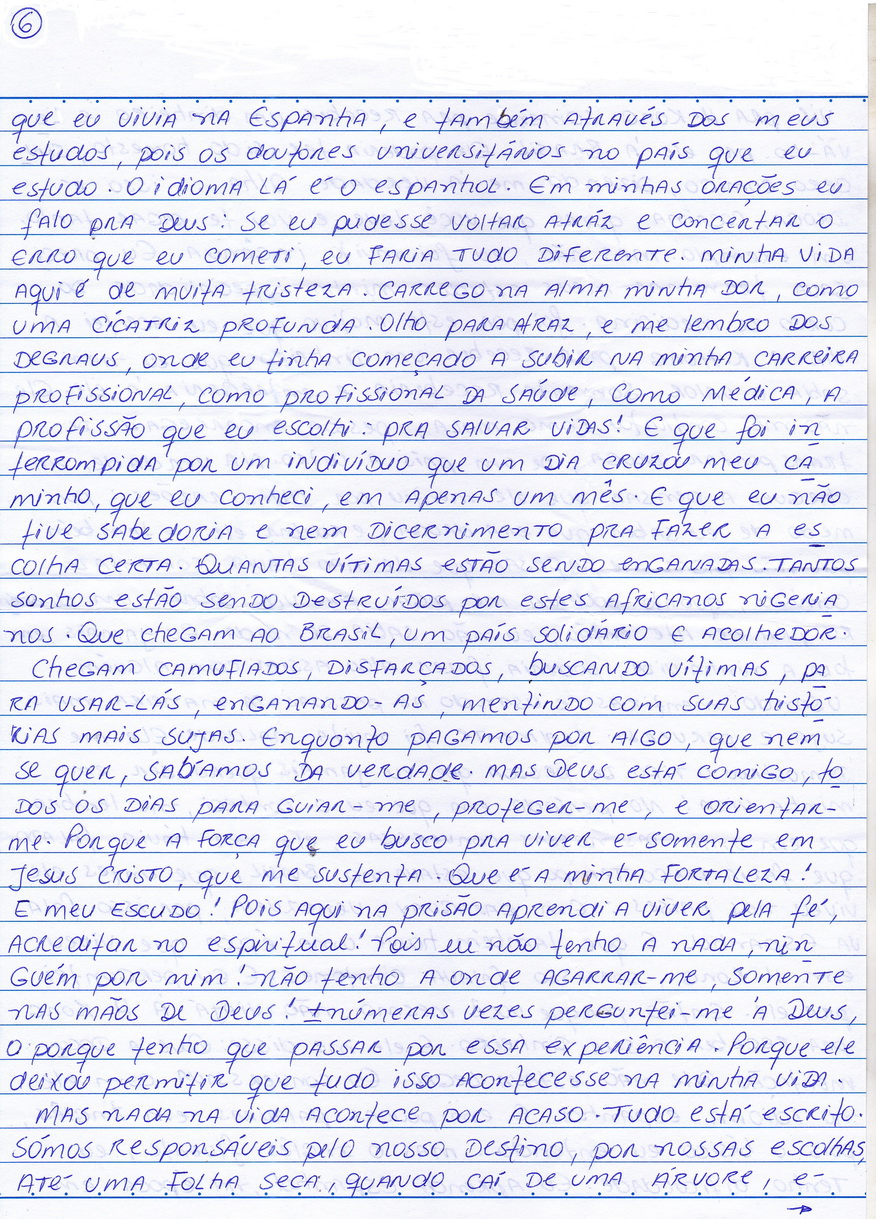 6
que eu vivia na Espanha, e também através dos meus
estudos, pois os doutores universitários no país que eu
estudo. O idioma lá é o espanhol. Em minhas orações eu
falo pra Deus: Se eu pudesse voltar atráz e concertar o
erro que eu cometi, eu faria tudo diferente. Minha vida
aqui é de muita tristeza. Carrego na alma minha dor, como
uma cicatriz profunda. Olho para atraz, e me lembro dos
degraus, onde eu tinha começado a subir na minha carreira
profissional, como profissional da saúde, como médica, a
profissão que eu escolhi: pra salvar vidas! E que foi in
terrompida por um indivíduo que um dia cruzou meu ca
minho, que eu conheci, em apenas um mês. E que eu não
tive sabedoria e nem dicernimento pra fazer a es
colha certa. Quantas vítimas estão sendo enganadas. Tantos
sonhos estão sendo destruídos por estes africanos nigeria
nos. Que chegam ao Brasil, um país solidário e acolhedor.
Chegam camuflados, disfarçados, buscando vítimas, pa
ra usar-lás, enganando-as, mentindo com suas histó
rias mais sujas. Enquanto pagamos por algo, que nem
se quer, sabíamos da verdade. Mas Deus está comigo, to
dos os dias para guiar-me, proteger-me, e orientar-
me. Porque a força que eu busco pra viver é somente em
Jesus Cristo, que me sustenta. Que é a minha fortaleza!
E meu escudo! Pois aqui na prisão aprendi a viver pela fé,
acreditar no espiritual! Pois eu não tenho a nada, nin
guém por mim! Não tenho a onde agarrar-me, somente
nas mãos de Deus! Inúmeras vezes perguntei-me a Deus,
o porque tenho que passar por essa experiência. Porque ele
deixou permitir que tudo isso acontecesse na minha vida.
Mas nada na vida acontece por acaso. Tudo está escrito.
Sómos responsáveis pelo nosso destino, por nossas escolhas,
até uma folha seca, quando caí de uma árvore, é